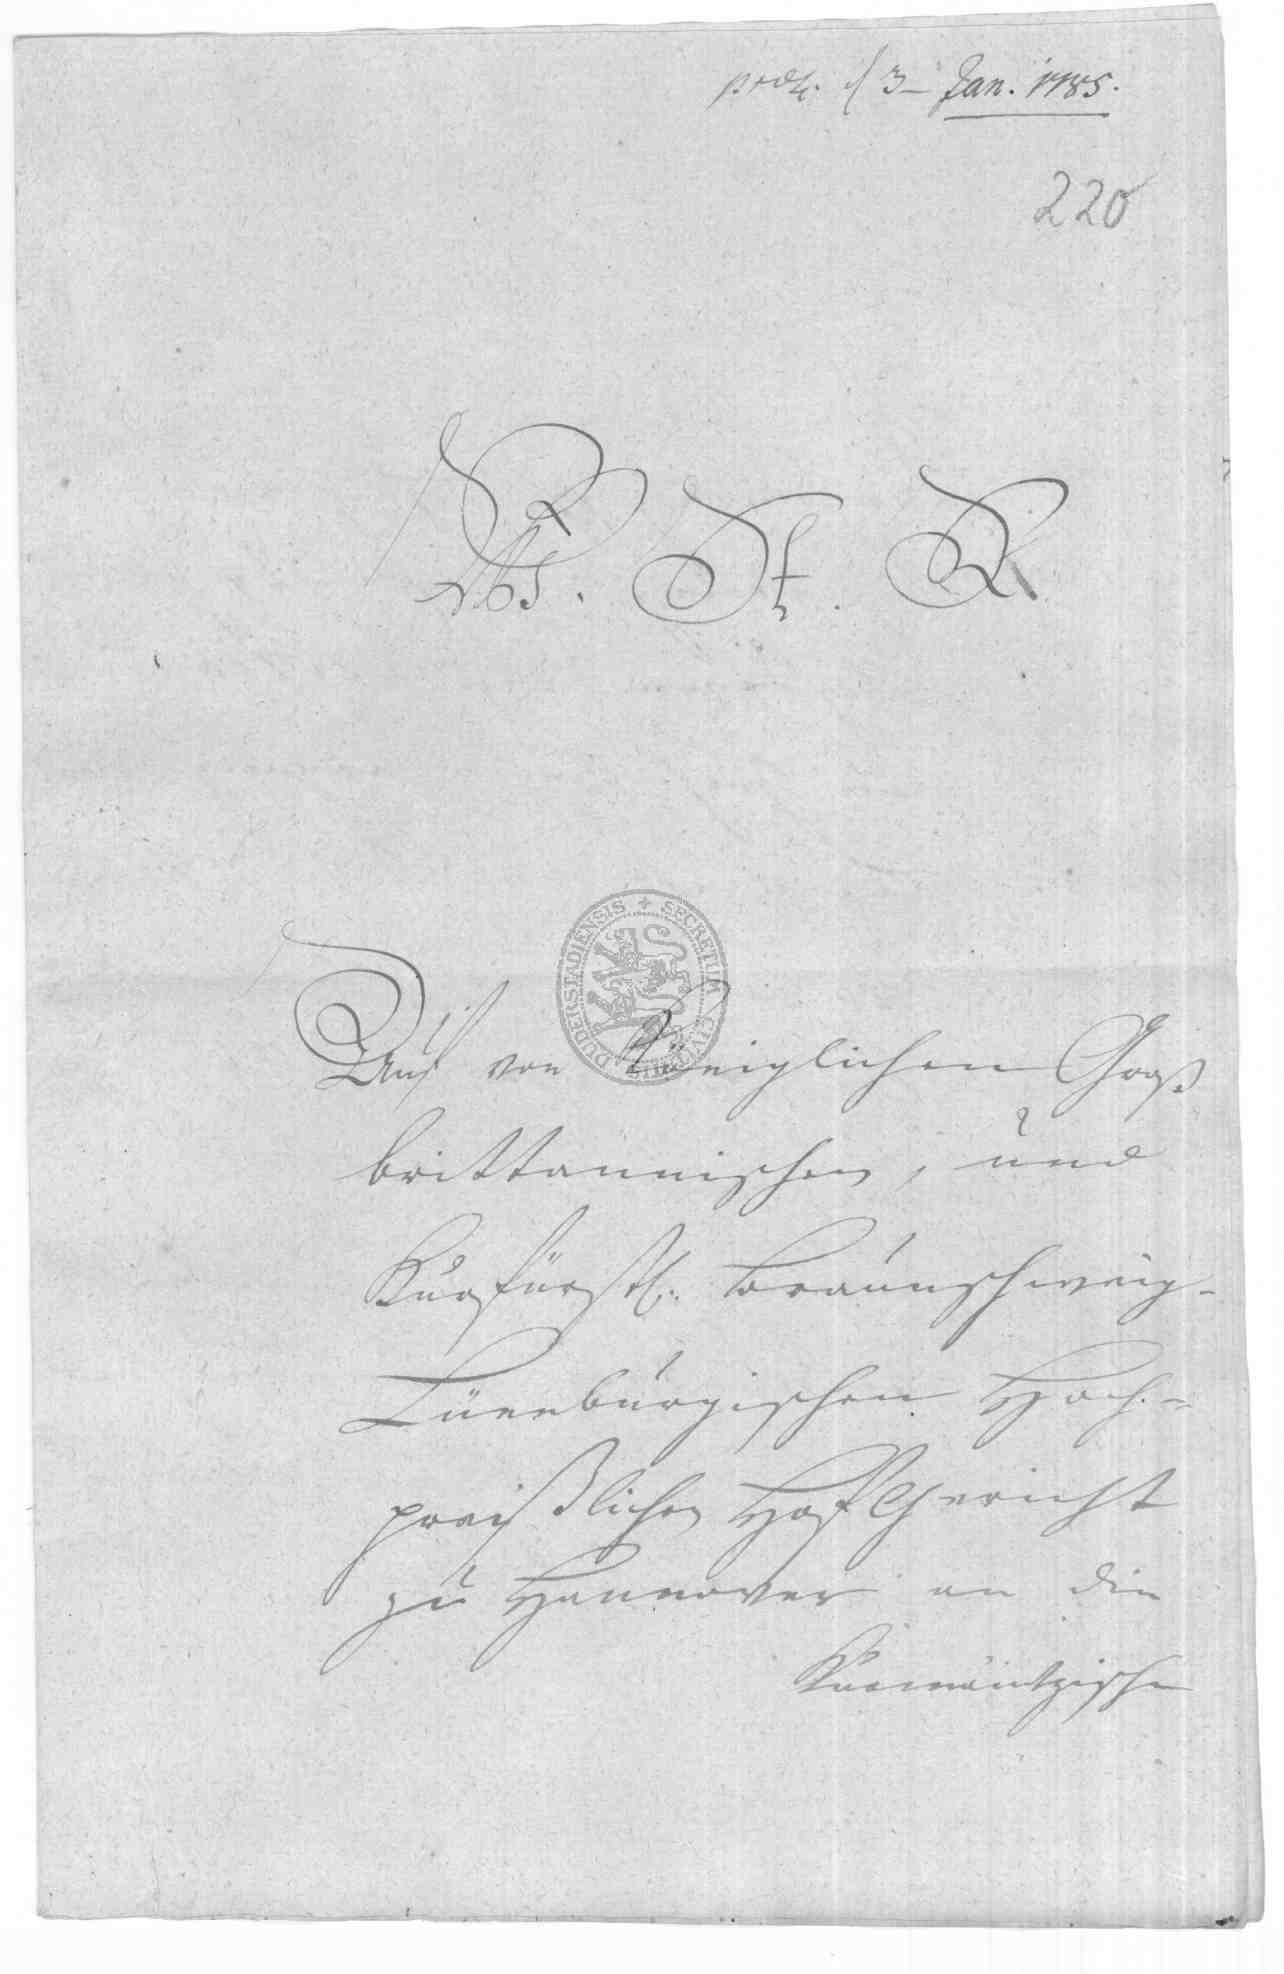 d 3 Jan. 1785.
220
DUDERSTADIENSIS + SECRETUM CIVITATIS
Auf von Königlichen Groß
brittannischen, und
Kurfürstl. braunschweig-
Lüneburgischen Hoch-
preißlichen Hof Gericht
zu Hannover an die
Kurmaintzische